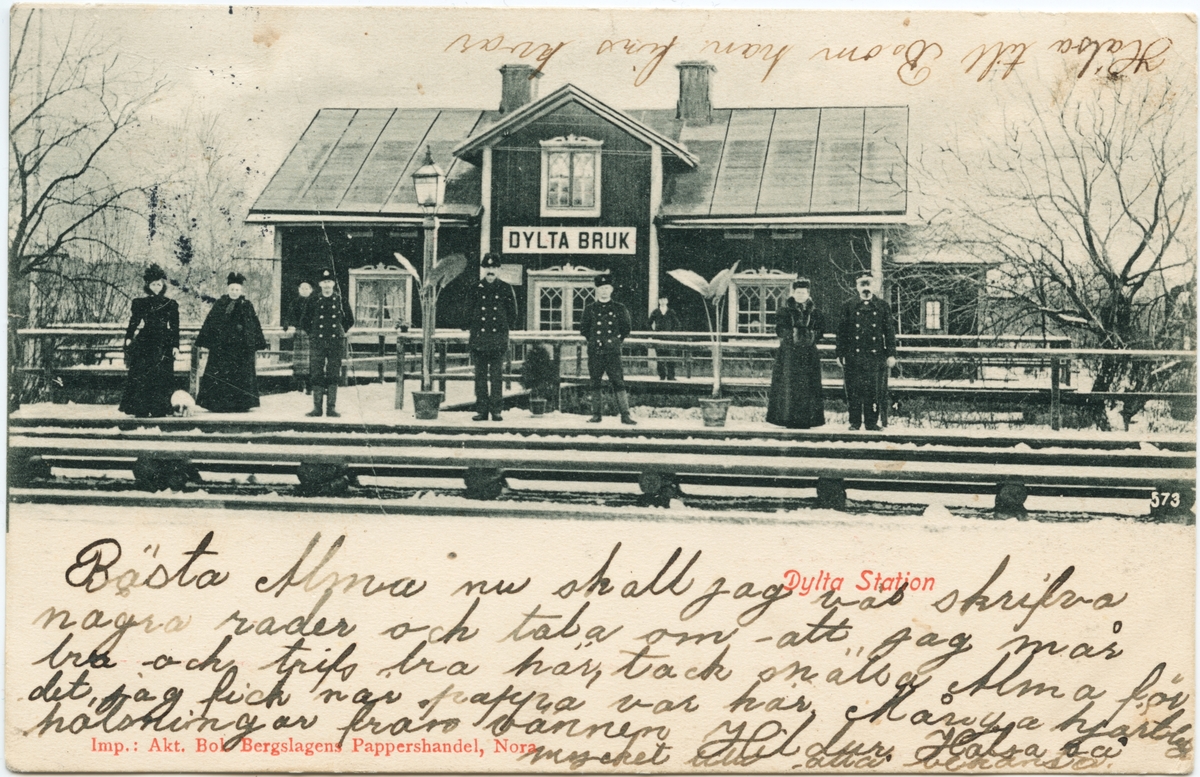 Hälsa till B. om han fins kvar
DYLTA BRUK
573
Dylta Station
Bästa Alma nu skall jag väl skrifva
några rader och tala om att jag mår
bra och trifs bra här, tack snälla Alma för
det, jag fick när pappa var här. Många hjärtlig
hälsningar från vännen Hildur. Hälsa så
mycket till alla bekanta.
Imp.: Akt. Bol. Bergslagens Pappershandel, Nora.